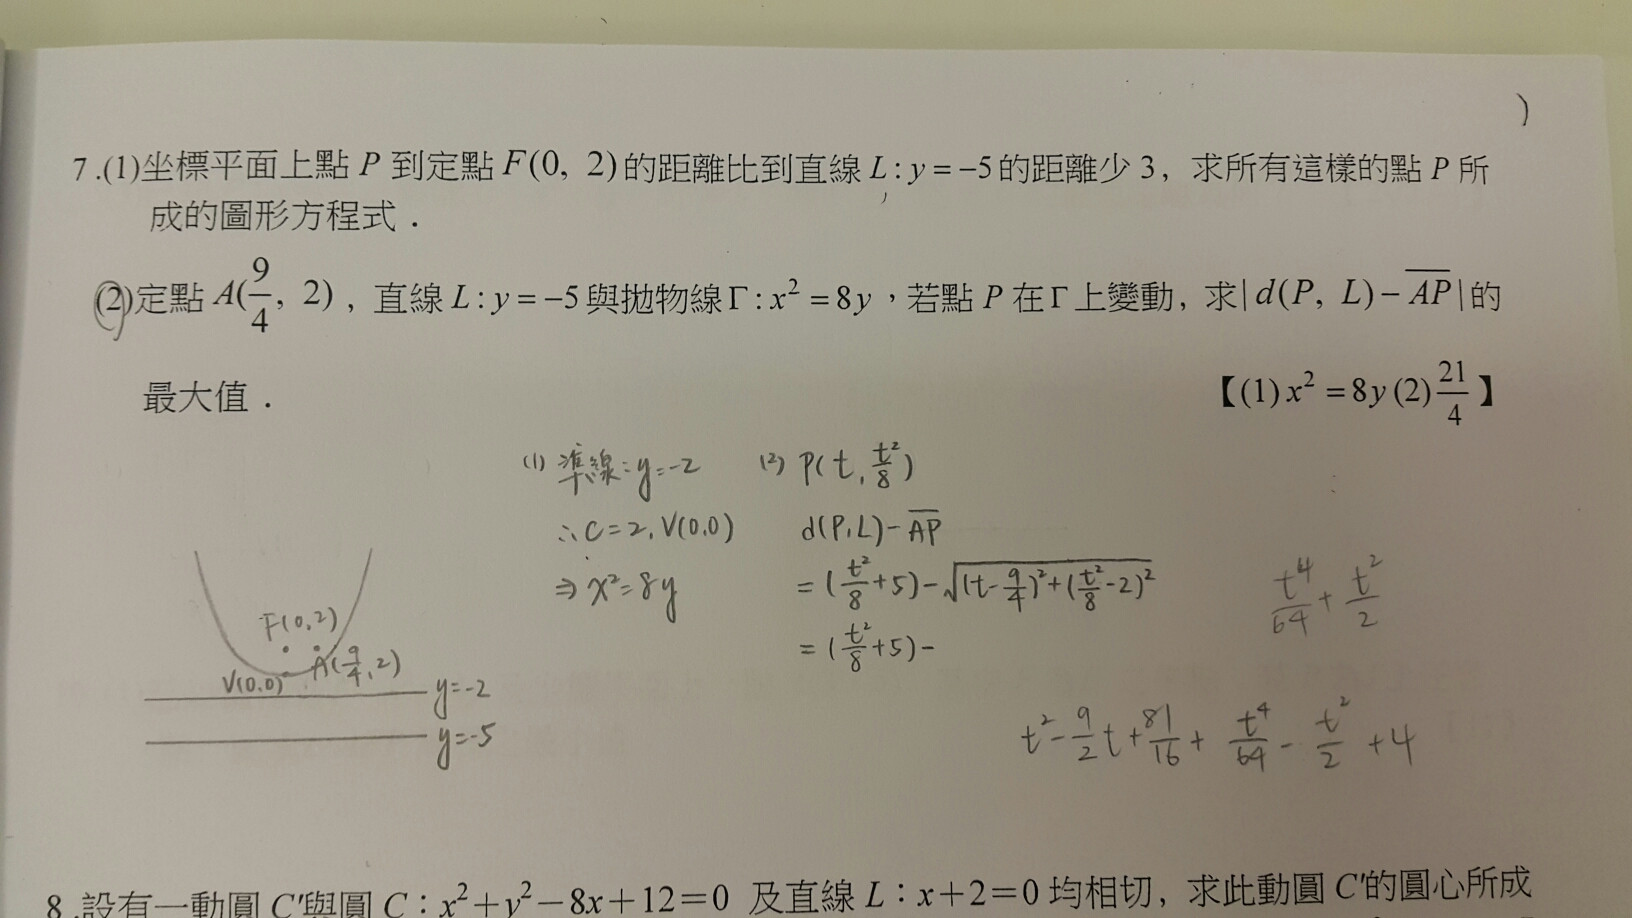 )
7.(1)坐標平面上點 P 到定點 F(0, 2)的距離比到直線 L:y=−5的距離少 3, 求所有這樣的點 P 所
成的圖形方程式．
(2)定點 A(9/4, 2), 直線 L:y=−5與拋物線Γ:x²=8y，若點 P 在Γ上變動, 求|d(P, L)−A̅P̅|的
最大值．
【(1)x²=8y(2)21/4】
(1) 準線:y=-2
∴c=2, V(0,0)
⇒x²=8y
(2) P(t, t²/8)
d(P,L)-A̅P̅
=(t²/8+5)-√((t-9/4)²+(t²/8-2)²)
=(t²/8+5)-
t⁴/64+t²/2
t²-9/2t+81/16+t⁴/64-t²/2+4
F(0,2)
A(9/4,2)
V(0,0)
y=-2
y=-5
8.設有一動圓 C′與圓 C：x²+y²−8x+12=0 及直線 L：x+2=0 均相切, 求此動圓 C′的圓心所成